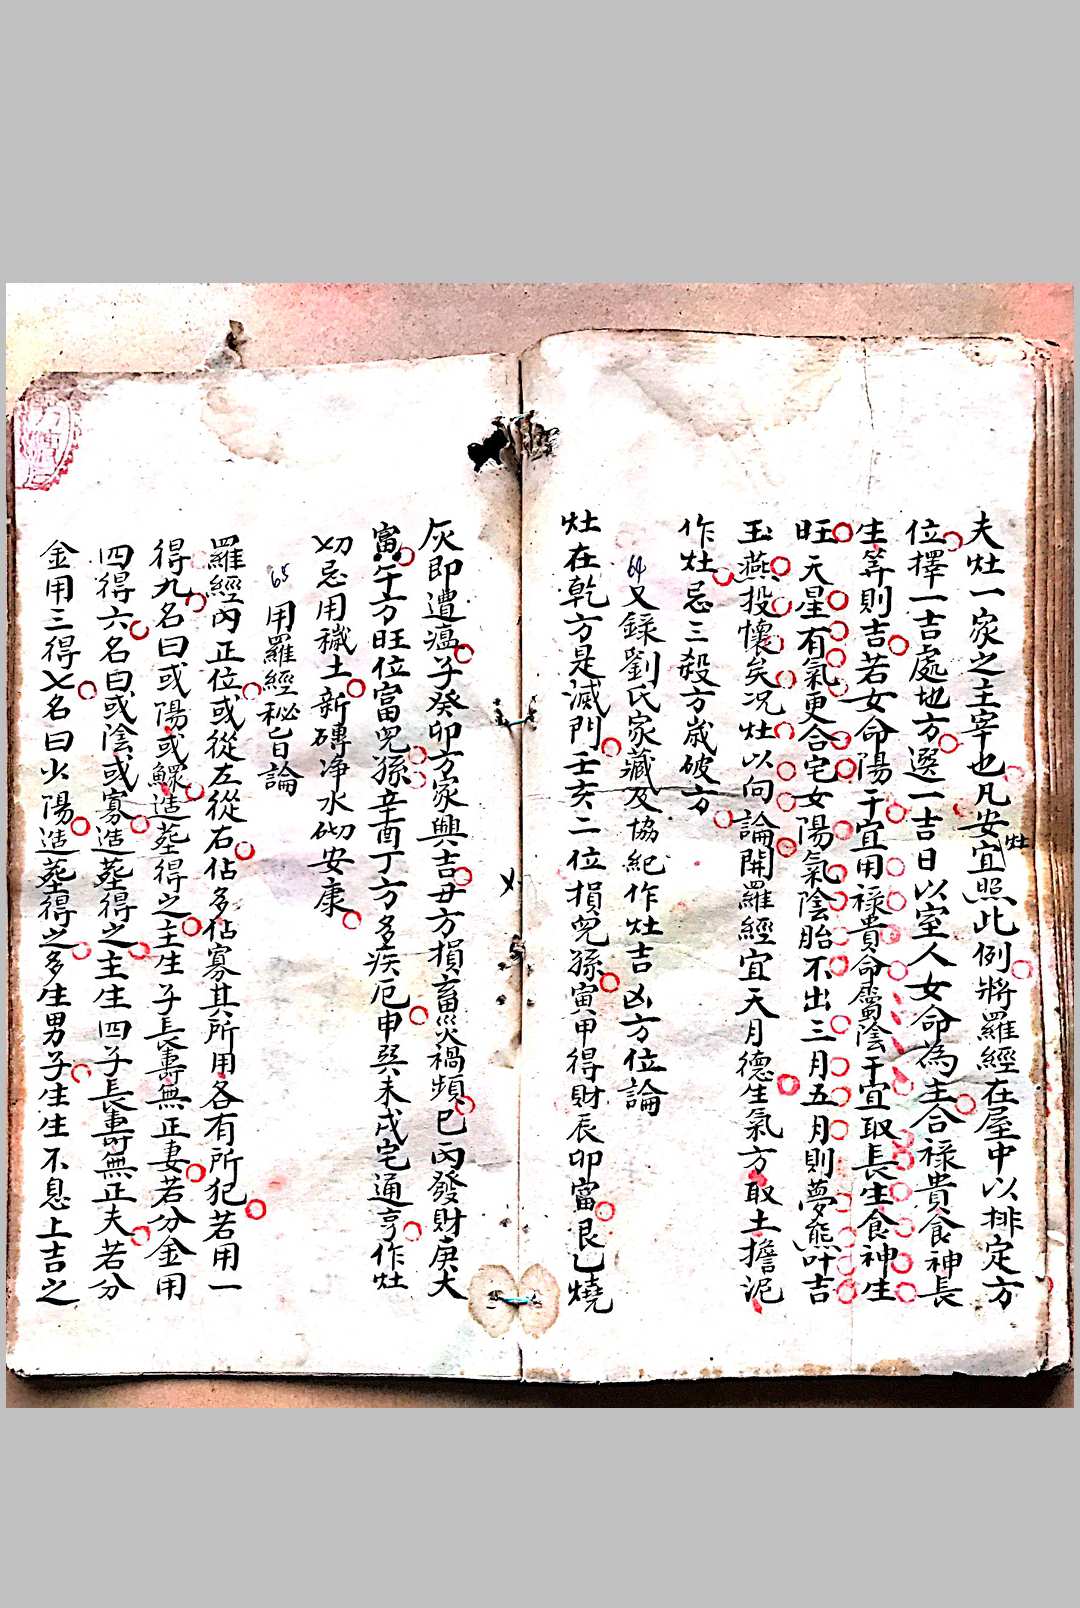 夫灶一家之主宰也凡安灶宜照此例將羅經在屋中以排定方
位擇一吉處地方選一吉日以室人女命為主合禄貴食神長
生等則吉若女命陽干宜用禄貴命屬陰干宜取長生食神生
旺天星有氣更合宅女陽氣陰胎不出三月五月則夢熊叶吉
玉燕投懷矣况灶以向論開羅經宜天月德生氣方取土擔泥
作灶忌三殺方歲破方
64又錄劉氏家藏及協紀作灶吉凶方位論
灶在乾方是滅門壬亥二位損兒孫寅甲得財辰卯富艮乙燒
灰即遭瘟子癸卯方家興吉丑方損畜災禍頻巳丙發財庚大
富午方旺位富兒孫辛酉丁方多疾厄申巽未戌宅通亨作灶
切忌用穢土新磚净水砌安康
65用羅經秘旨論
羅經內正位或從左從右佔多佔寡其所用各有所犯若用一
得九名曰或陽或鰥造塟得之主生子長壽無正妻若分金用
四得六名曰或陰或寡造塟得之主生四子長壽無正夫若分
金用三得七名曰少陽造塟得之多生男子生生不息上吉之